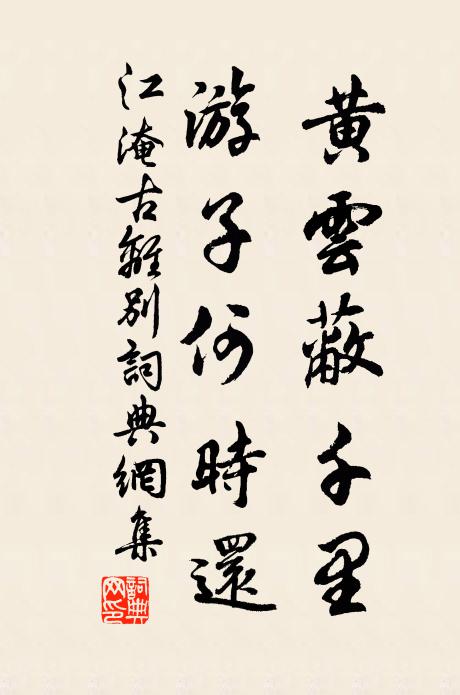 黃雲蔽千里
游子何時還
江淹古離別詞典網集
詞典
网印